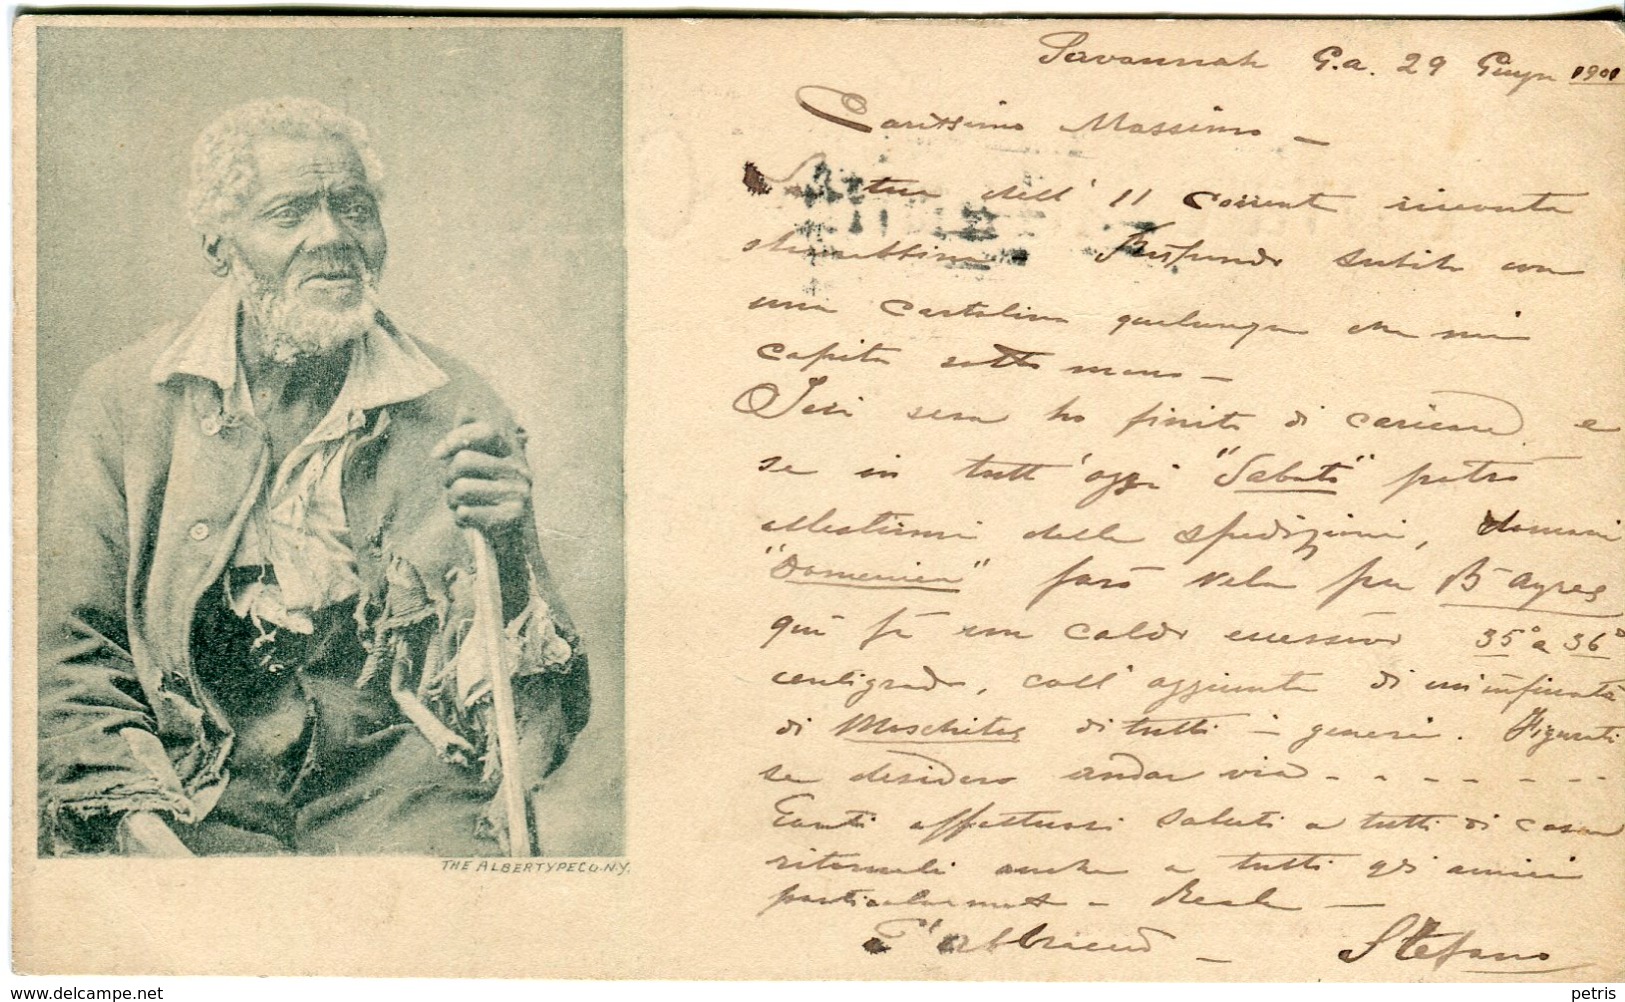 Savannah G.a. 29 Giugn 1901
Carissimo Massimo —
tua dell' 11 Corrente ricevuta
Rispondo subito con
una Cartolina qualunque che mi
capita sotto mano —
Ieri sera ho finito di caricare e
se in tutt'oggi "Sabato" potrò
delle spedizioni, domani
"Domenica" farò vela per B Ayres
qui fà un caldo eccessivo 35° a 36°
centigrado, coll' aggiunta di un'infinità
di Moschites di tutti i generi. Figurati
se desidero andar via - - - - - - -
Tanti affettuosi saluti a tutti di casa
ritornali anche a tutti gli amici
particolarmente a —
T'abbraccio — Stefano
THE ALBERTYPE CO. N.Y.
https://www.delcampe.net
petris